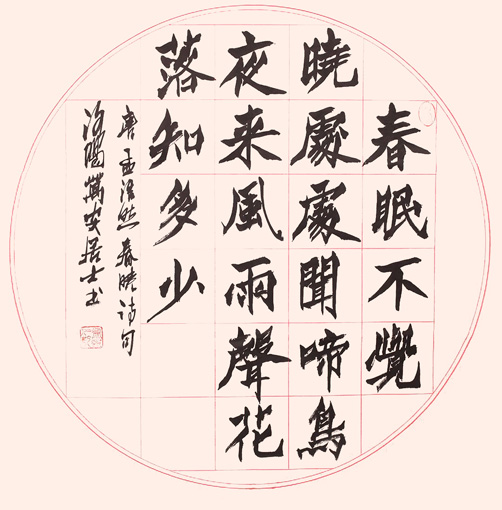 春眠不覺
曉處處聞啼鳥
夜来風雨聲花
落知多少
唐孟浩然春晓诗句
洛陽萬安居士书